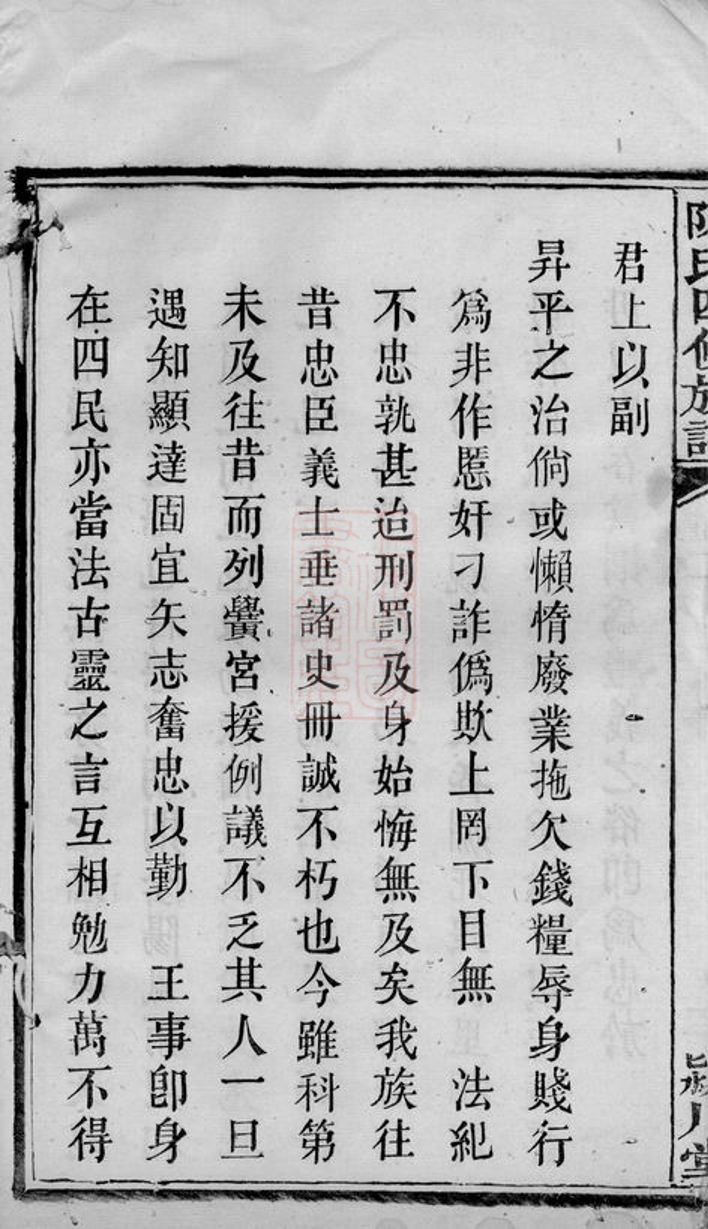 陳氏四修族譜
君上以副
昇平之治倘或懶惰廢業拖欠錢糧辱身賤行
爲非作慝奸刁詐僞欺上罔下目無 法紀
不忠孰甚迨刑罰及身始悔無及矣我族往
昔忠臣義士垂諸史冊誠不朽也今雖科第
未及往昔而列黌宮援例議不乏其人一旦
遇知顯達固宜矢志奮忠以勤 王事卽身
在四民亦當法古靈之言互相勉力萬不得